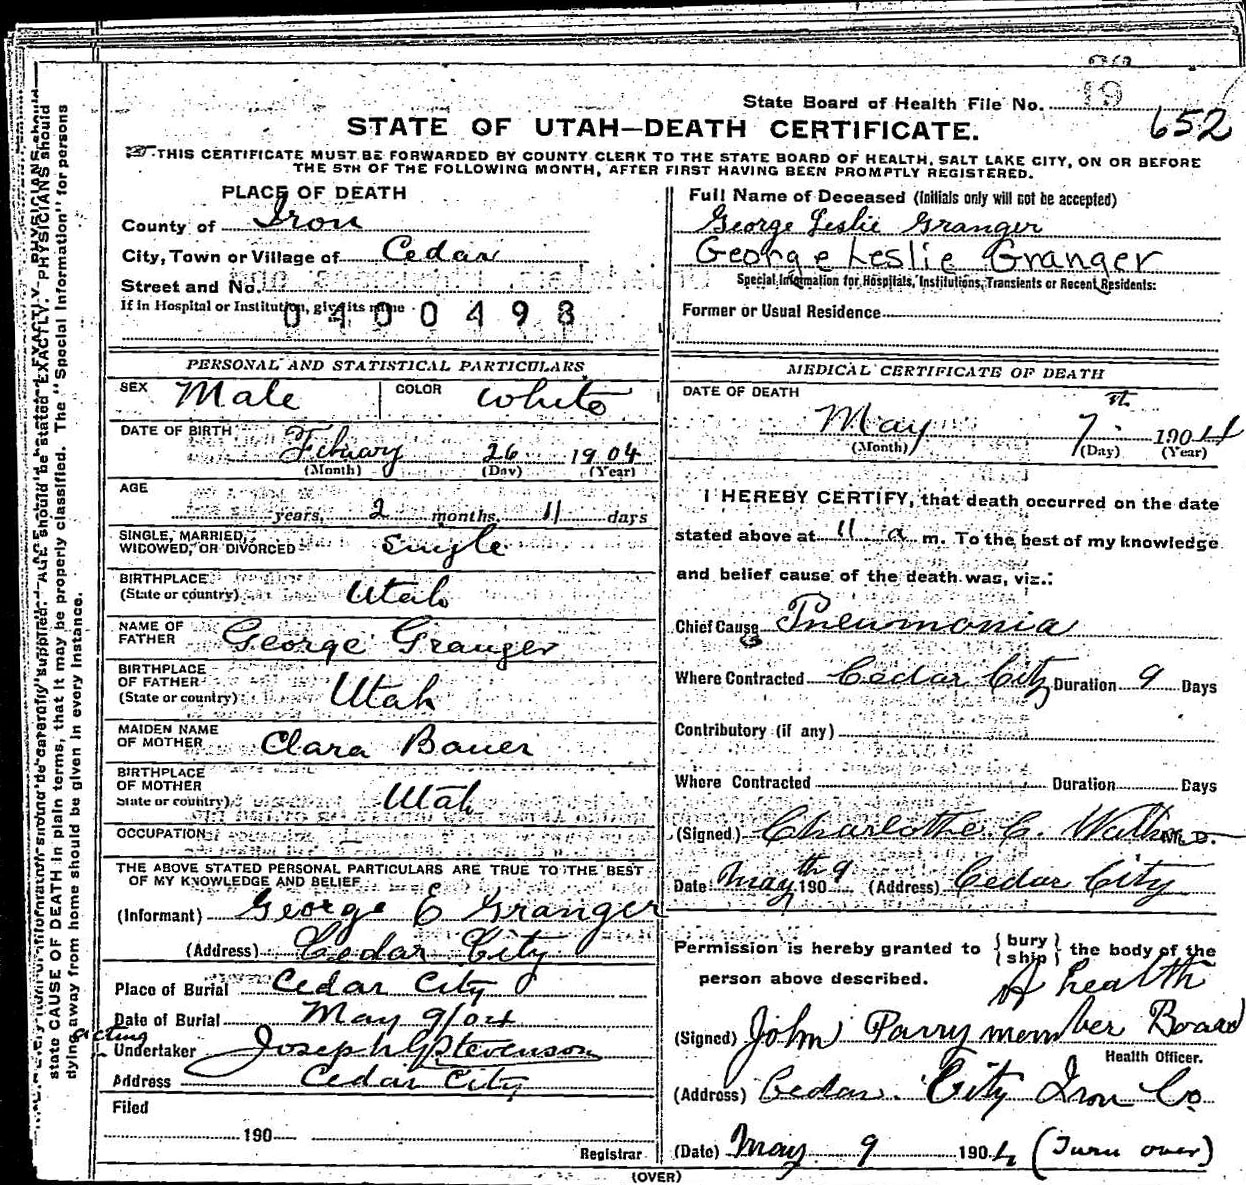 State Board of Health File No. 19
652
STATE OF UTAH—DEATH CERTIFICATE.
THIS CERTIFICATE MUST BE FORWARDED BY COUNTY CLERK TO THE STATE BOARD OF HEALTH, SALT LAKE CITY, ON OR BEFORE
THE 5TH OF THE FOLLOWING MONTH, AFTER FIRST HAVING BEEN PROMPTLY REGISTERED.
PLACE OF DEATH
County of Iron
City, Town or Village of Cedar
Street and No.
If in Hospital or Institution, give its name
0400498
PERSONAL AND STATISTICAL PARTICULARS
SEX Male COLOR White
DATE OF BIRTH February 26 1904
(Month) (Day) (Year)
AGE
years, 2 months, 11 days
SINGLE, MARRIED,
WIDOWED, OR DIVORCED Single
BIRTHPLACE
(State or country) Utah
NAME OF
FATHER George Granger
BIRTHPLACE
OF FATHER
(State or country) Utah
MAIDEN NAME
OF MOTHER Clara Bauer
BIRTHPLACE
OF MOTHER
State or country) Utah
OCCUPATION
THE ABOVE STATED PERSONAL PARTICULARS ARE TRUE TO THE BEST
OF MY KNOWLEDGE AND BELIEF
(Informant) George E Granger
(Address) Cedar City
Place of Burial Cedar City
Date of Burial May 9/04
acting
Undertaker Joseph G Stevenson
Address Cedar City
Filed
190
Registrar
Full Name of Deceased (Initials only will not be accepted)
George Leslie Granger
George Leslie Granger
Special Information for Hospitals, Institutions, Transients or Recent Residents:
Former or Usual Residence
MEDICAL CERTIFICATE OF DEATH
DATE OF DEATH
May 7th 1904
(Month) (Day) (Year)
I HEREBY CERTIFY, that death occurred on the date
stated above at 11 a m. To the best of my knowledge
and belief cause of the death was, viz.:
Chief Cause Pneumonia
Where Contracted Cedar City Duration 9 Days
Contributory (if any)
Where Contracted Duration Days
(Signed) Charlotte C. M.D.
Date May th 9 190 (Address) Cedar City
Permission is hereby granted to {bury
ship} the body of the
person above described.
health
(Signed) John Parry member Board
Health Officer.
(Address) Cedar City Iron Co.
(Date) May 9 1904 (Turn over)
(OVER)
state CAUSE OF DEATH in plain terms, that it may be properly classified. The "Special Information" for persons
dying away from home should be given in every instance.